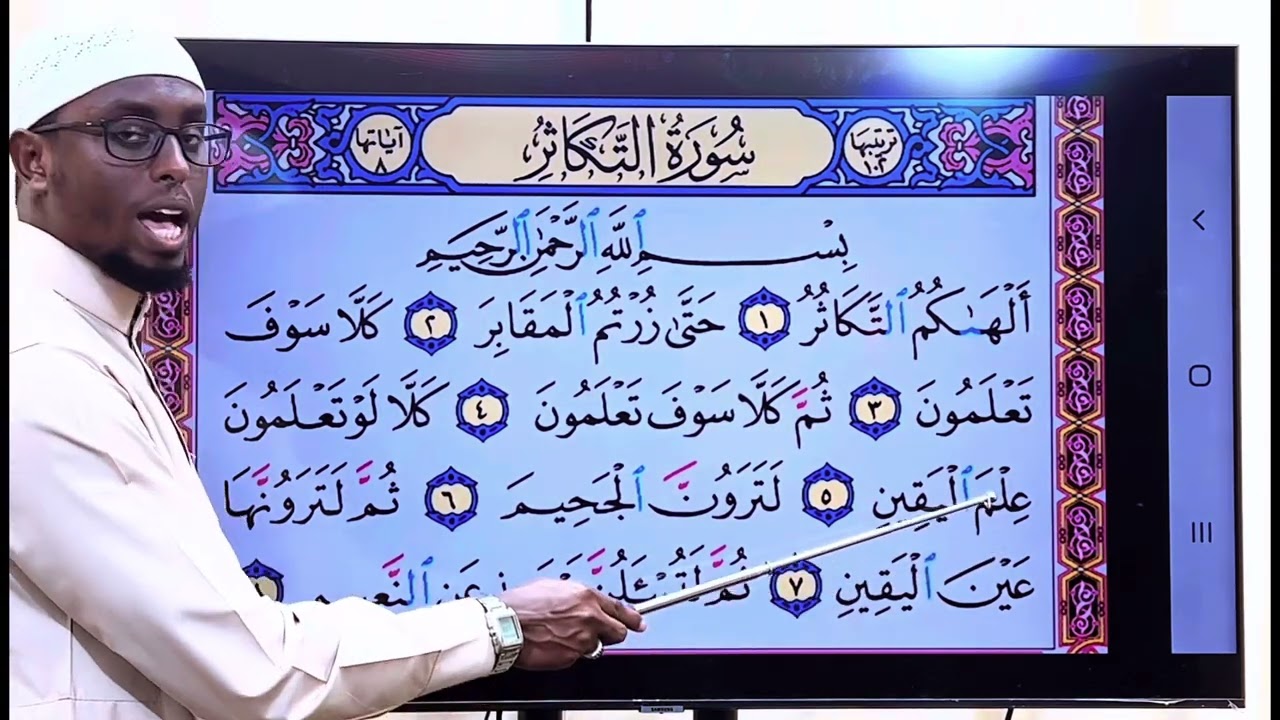 ترتيبها ١٠٢ سُورَةُ التَّكَاثُرِ آيَاتها ٨
بِسْمِ ٱللَّهِ ٱلرَّحْمَٰنِ ٱلرَّحِيمِ
أَلْهَىٰكُمُ ٱلتَّكَاثُرُ ١ حَتَّىٰ زُرْتُمُ ٱلْمَقَابِرَ ٢ كَلَّا سَوْفَ
تَعْلَمُونَ ٣ ثُمَّ كَلَّا سَوْفَ تَعْلَمُونَ ٤ كَلَّا لَوْ تَعْلَمُونَ
عِلْمَ ٱلْيَقِينِ ٥ لَتَرَوُنَّ ٱلْجَحِيمَ ٦ ثُمَّ لَتَرَوُنَّهَا
عَيْنَ ٱلْيَقِينِ ٧ ثُمَّ لَتُسْـَٔلُنَّ عَنِ ٱلنَّعِيمِ ٨
SAMSUNG